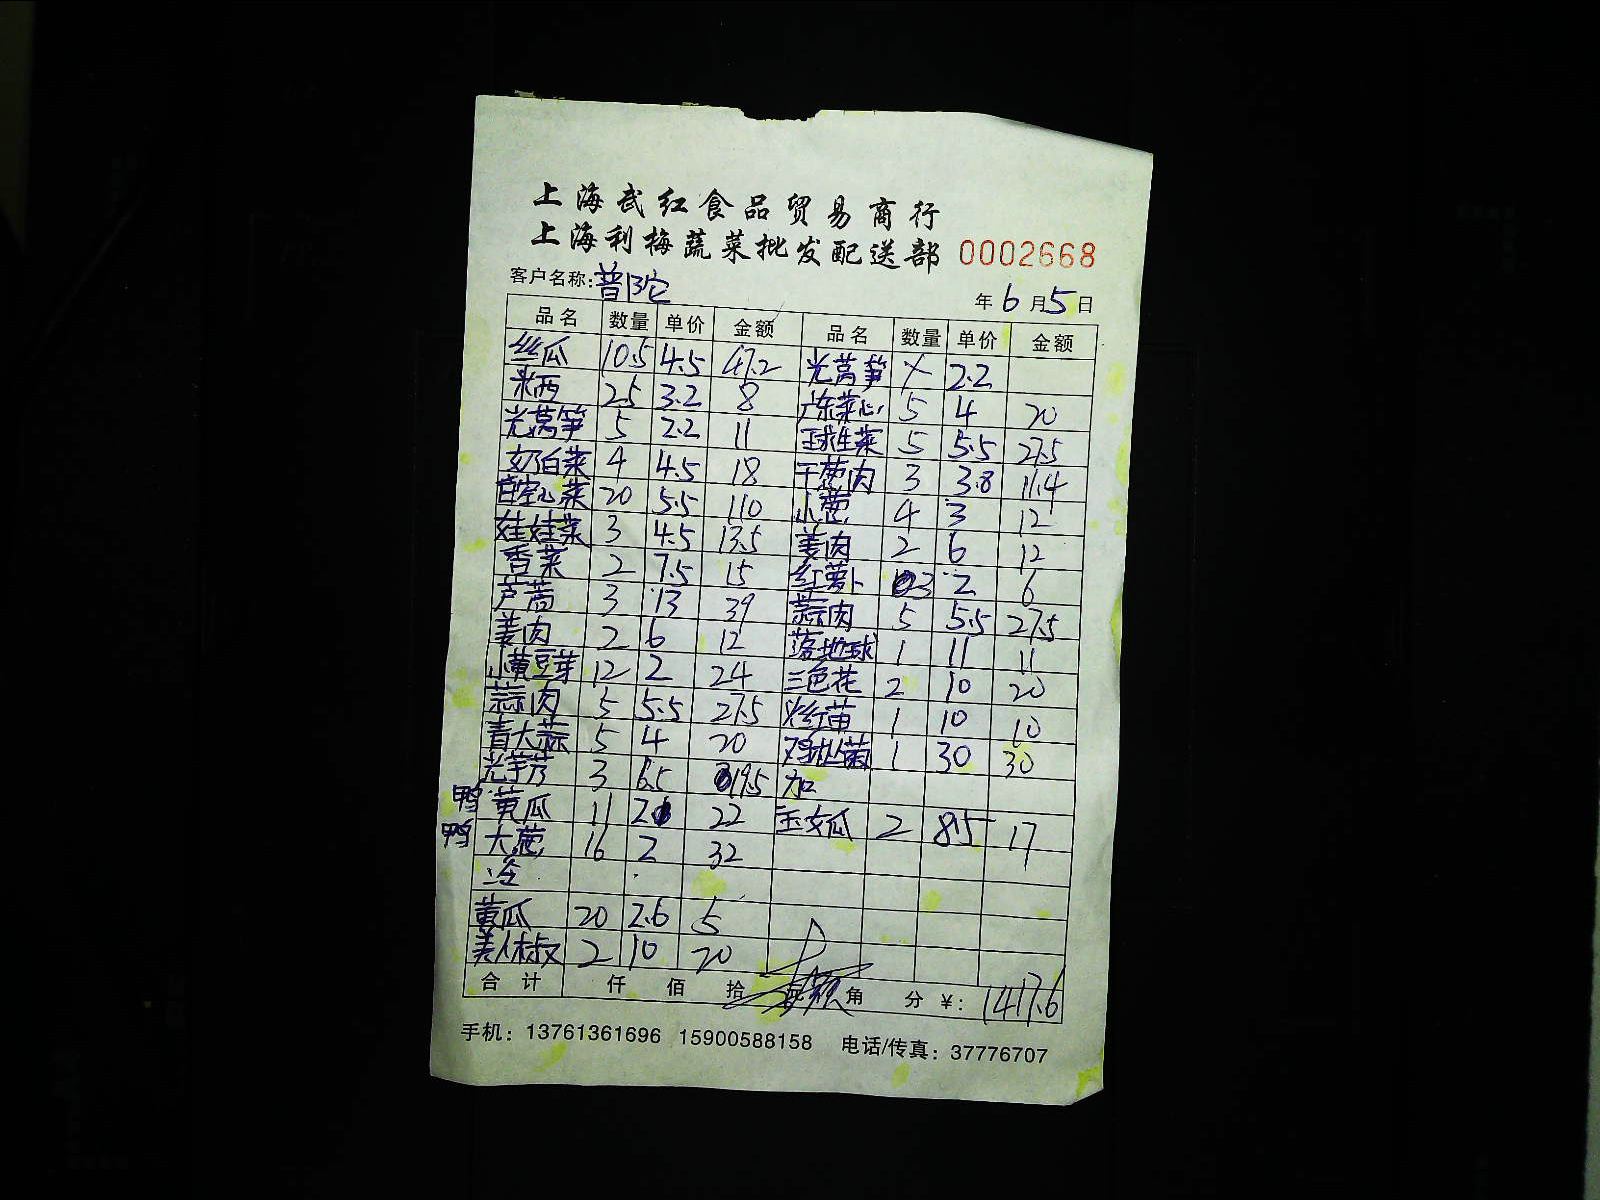 上海武红食品贸易商行
上海利梅蔬菜批发配送部 0002668
客户名称:普陀 年6月5日
品名 数量 单价 金额 品名 数量 单价 金额
丝瓜 10.5 4.5 47.2 光莴笋 X 2.2
米西 25 3.2 8 广东菜心 5 4 20
光莴笋 5 2.2 11 球生菜 5 5.5 27.5
奶白菜 4 4.5 18 干葱肉 3 3.8 11.4
空心菜 20 5.5 110 小葱 4 3 12
娃娃菜 3 4.5 13.5 姜肉 2 6 12
香菜 2 7.5 15 红萝卜 3 2 6
芦蒿 3 13 39 蒜肉 5 5.5 27.5
姜肉 2 6 12 落地球 1 11 11
小黄豆芽 12 2 24 三色花 2 10 20
蒜肉 5 5.5 27.5 苗 1 10 10
青大蒜 5 4 20 鸡枞菌 1 30 30
光芋艿 3 6.5 19.5 加
鸭 黄瓜 11 2 22 玉女瓜 2 8.5 17
鸭 大葱 16 2 32
黄瓜 20 2.6 5
美人椒 2 10 20
合计 仟 佰 拾 元 角 分 ¥: 1417.6
手机: 13761361696 15900588158 电话/传真: 37776707